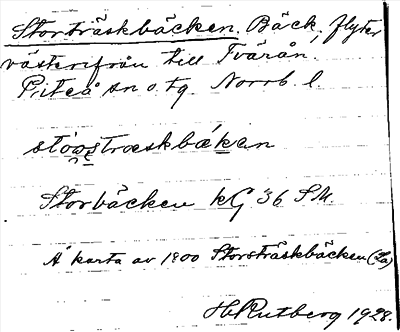 Storträskbäcken. Bäck, flyter
västerifrån till Tvärån,
Piteå sn o. tg. Norrb. l.
Storbäcken kG 36 S.M.
Å karta av 1800 Storsträskbäcken (La)
H. Rutberg 1928.